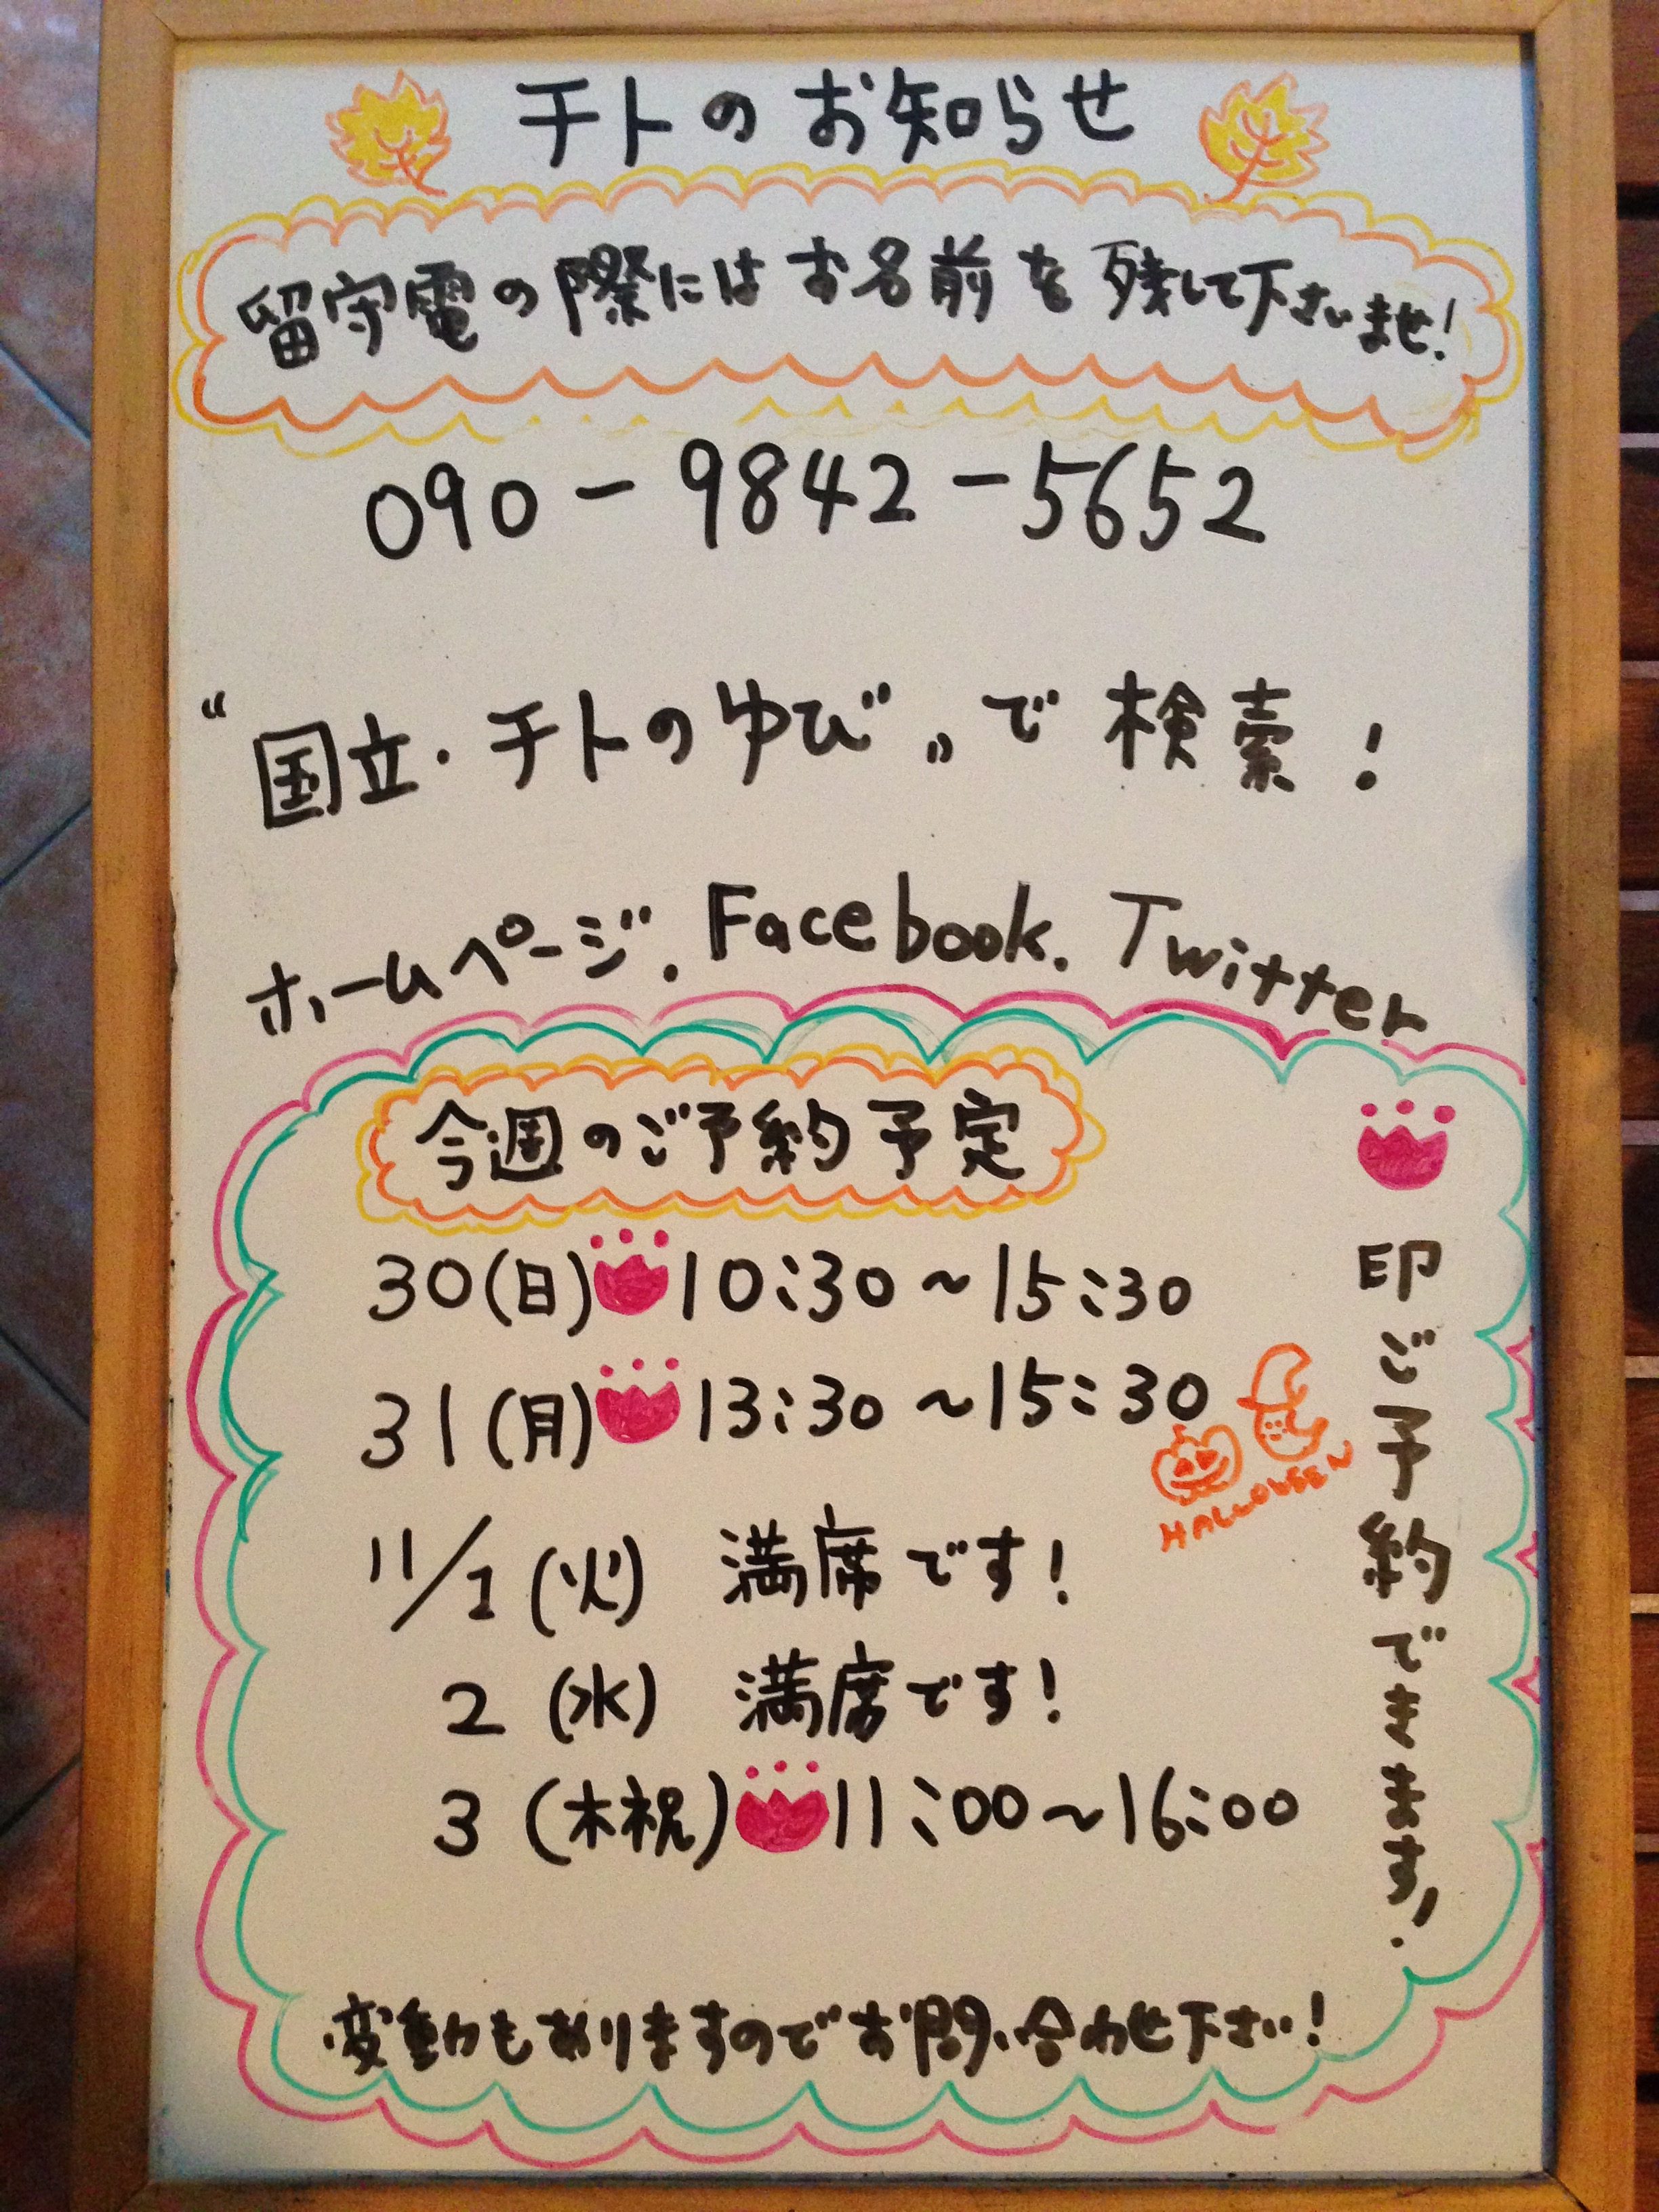 チトのお知らせ
留守電の際にはお名前を残して下さいませ!
090-9842-5652
“国立・チトのゆび”で検索!
ホームページ. Facebook. Twitter
今週のご予約予定
30(日) 10:30~15:30
31(月) 13:30~15:30
HALLOWEEN
11/1(火) 満席です!
2(水) 満席です!
3(木祝) 11:00~16:00
印ご予約できます!
変動もありますのでお問い合わせ下さい!